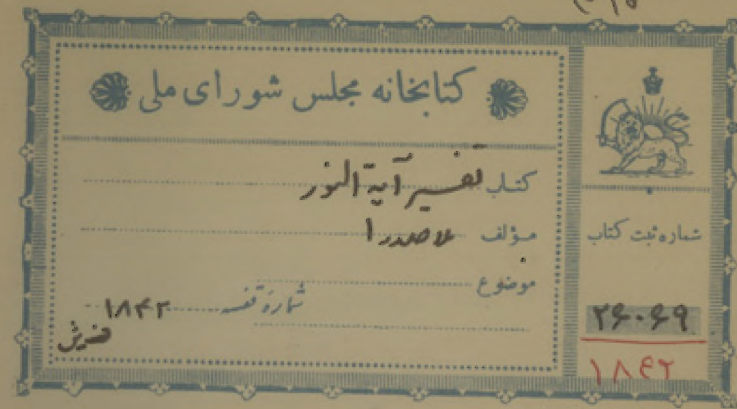 کتابخانه مجلس شورای ملی
کتاب تفسیر آیة النور
مؤلف ملاصدرا
موضوع
شماره قفسه ۱۸۴۲
شماره ثبت کتاب
۲۶۰۶۹
۱۸۴۲